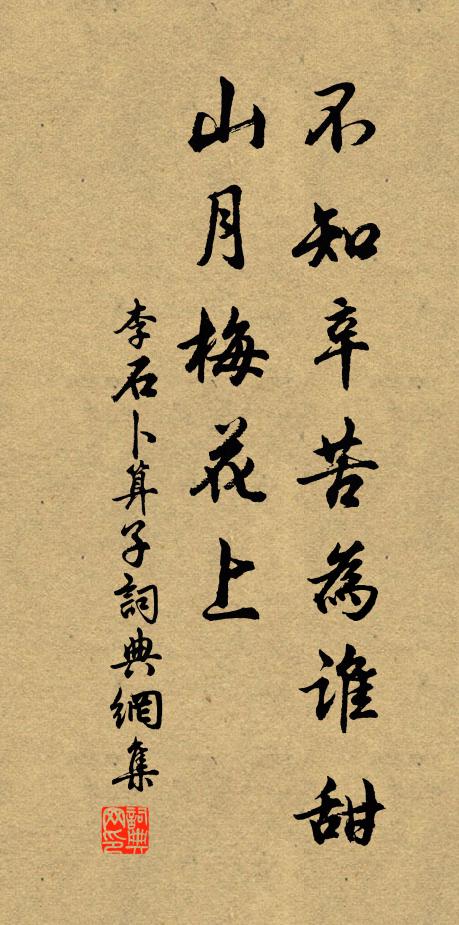 不知辛苦為誰甜
山月梅花上
李石卜算子詞典網集
詞典網印